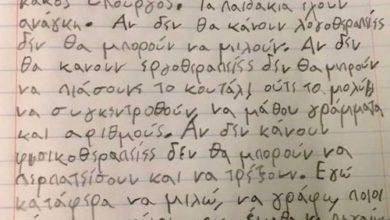 κακός υπουργός. Τα παιδάκια έχουν
ανάγκη. Αν δεν θα κάνουν λογοθεραπείες
δεν θα μπορούν να μιλούν. Αν δεν
θα κανουν εργοθεραπείες δεν θα μπορούν
να πιάσουνε το κουτάλι, ούτε το μολύβι
να συγκεντροθούν, να μάθου γράμματα
και αριθμούς. Αν δεν κανουν
φυσικοθεραπείες δεν θα μπορούν να
περπατείσουν και να τρέξουν. Εγώ
κατάφερα να μιλώ, να γράφω,